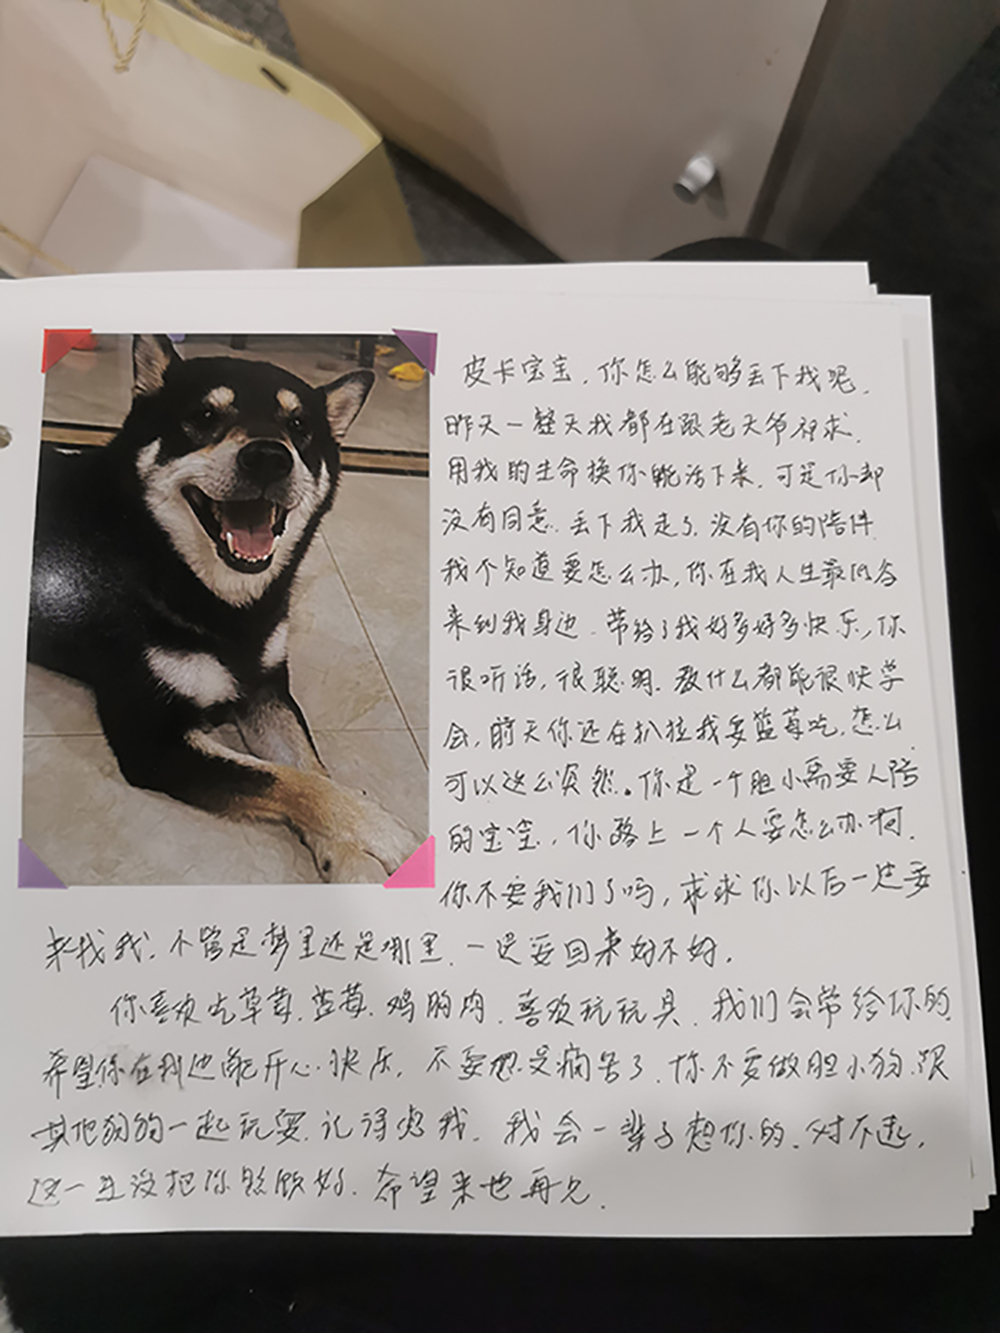 皮卡宝宝，你怎么能够丢下我呢，
昨天一整天我都在跟老天爷祈求，
用我的生命换你能活下来，可是你却
没有同意，丢下我走了，没有你的陪伴
我不知道要怎么办，你在我人生最低谷
来到我身边，带给了我好多好多快乐，你
很听话，很聪明，教什么都能很快学
会，前天你还在扒拉我要蓝莓吃，怎么
可以这么突然。你是一个胆小需要人陪
的宝宝，你路上一个人要怎么办啊，
你不要我们了吗，求求你以后一定要
来找我，不管是梦里还是哪里，一定要回来好不好，
你喜欢吃草莓，蓝莓，鸡胸肉，喜欢玩玩具，我们会带给你的，
希望你在那边能开心快乐，不要想受病苦了，你不要做胆小狗，跟
其他狗狗一起玩耍，记得想我，我会一辈子想你的，对不起，
这一生没把你照顾好，希望来世再见，